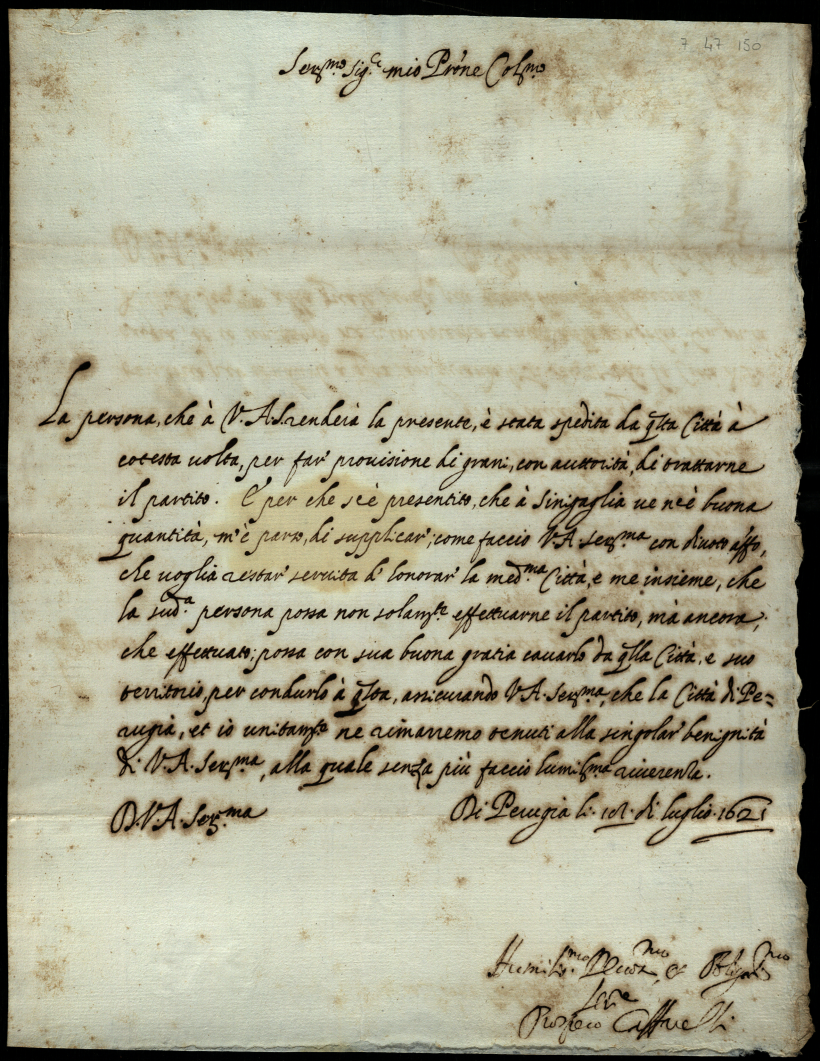 7 47 150
Ser.mo Sig.r mio P'rone Col.mo
La persona, che à V. A. S. renderà la presente, è stata spedita da q'sta Città à
cotesta uolta, per far' prouisione di grani, con auttorità, di trattarne
il partito. E per che s'è presentito, che à Sinigaglia ue n'è buona
quantità, m'è parso, di supplicar', come faccio V. A. Ser.ma con diuoto aff.o,
che uoglia restar' seruita d' honorar' la med.ma Città, e me insieme, che
la sud.a persona possa non solam.te effettuarne il partito, mà ancora,
che effettuato, possa con sua buona gratia cauarlo da q'lla Città, e suo
territorio, per condurlo à q'sta, assicurando V. A. Ser.ma, che la Città di Pe=
rugia, et io unitam.te ne rimarremo tenuti alla singolar' benignità
di V. A. Ser.ma, alla quale senza più faccio humiliss.ma riuerenza.
D. V. A. Ser.ma Di Perugia li di luglio 1621
Humiliss.mo Deuot.mo et Obligat.mo
Ser.re
Prospero Caffarelli